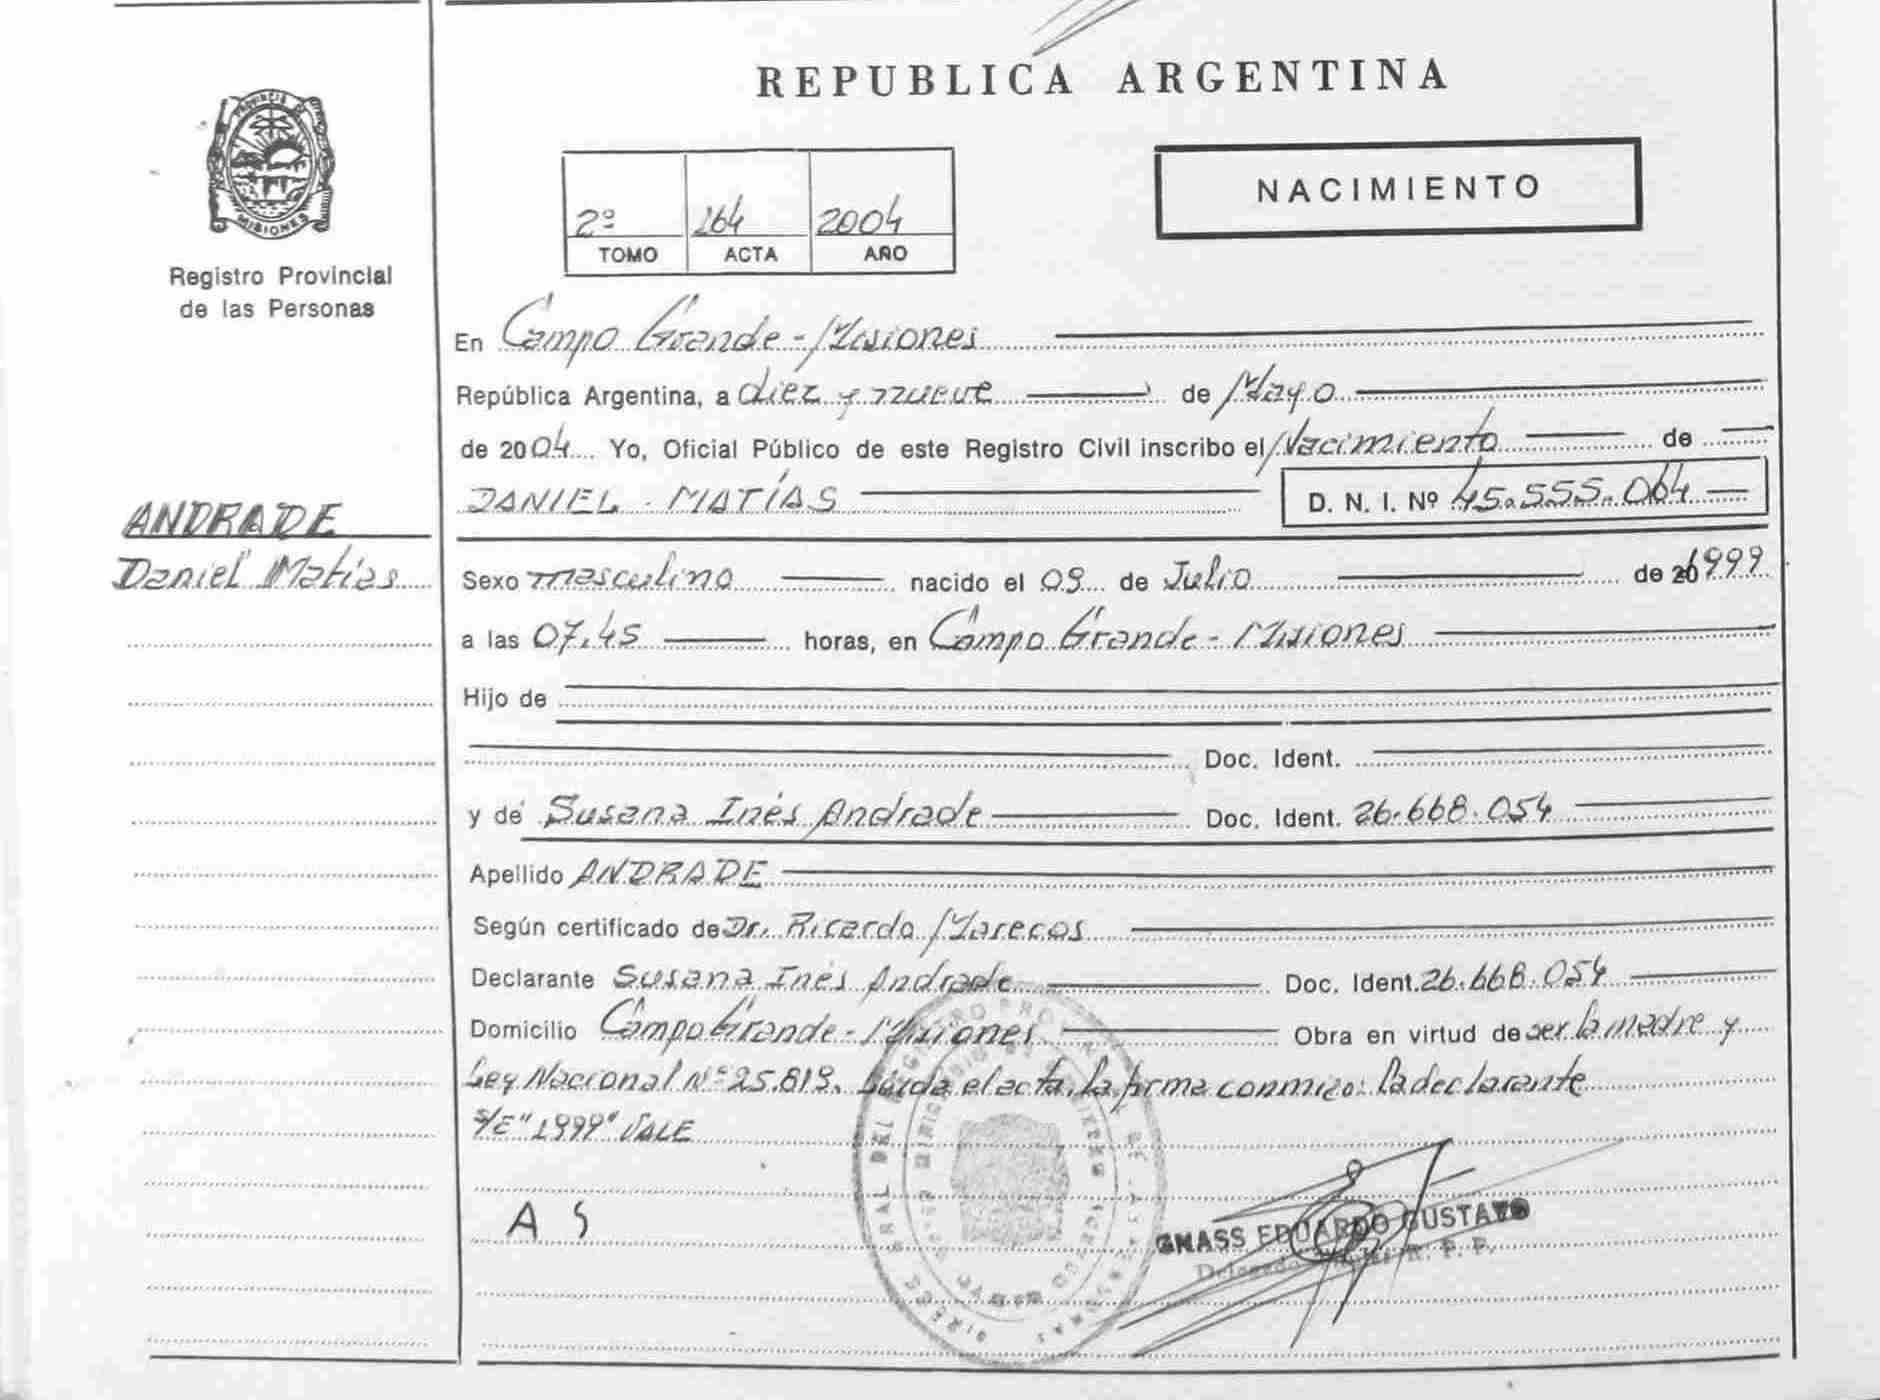 REPUBLICA ARGENTINA
PROVINCIA DE
MISIONES
Registro Provincial
de las Personas
NACIMIENTO
2º 164 2004
TOMO ACTA AÑO
En Campo Grande - Misiones
República Argentina, a diez y nueve de Mayo
de 2004 Yo, Oficial Público de este Registro Civil inscribo el Nacimiento de
DANIEL MATÍAS D. N. I. Nº 45.555.064
ANDRADE
Daniel Matías
Sexo masculino nacido el 09 de Julio de 1999
a las 07,45 horas, en Campo Grande - Misiones
Hijo de
Doc. Ident.
y de Susana Inés Andrade Doc. Ident. 26.668.054
Apellido ANDRADE
Según certificado de Dr. Ricardo Marecos
Declarante Susana Inés Andrade Doc. Ident. 26.668.054
Domicilio Campo Grande - Misiones Obra en virtud de ser la madre y
Ley Nacional Nº 25.819. Leída el acta, la firma conmigo: la declarante
S/E "1999" VALE
A S
GNASS EDUARDO GUSTAVO
Delegado R. P. P.